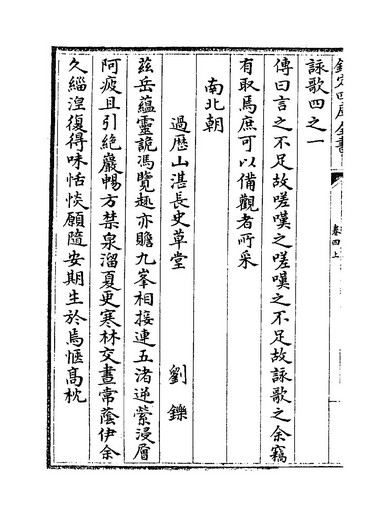 欽定四庫全書
卷四上
詠歌四之一
傳曰言之不足故嗟嘆之嗟嘆之不足故詠歌之余竊
有取焉庶可以備觀者所采
南北朝
過歴山湛長史草堂
劉鑠
茲岳蘊靈詭馮覽趣亦贍九峯相接連五渚逆縈浸層
阿疲且引絶巖暢方禁泉溜夏更寒林交晝常蔭伊余
久緇湼復得味恬惔願隨安期生於焉愜髙枕